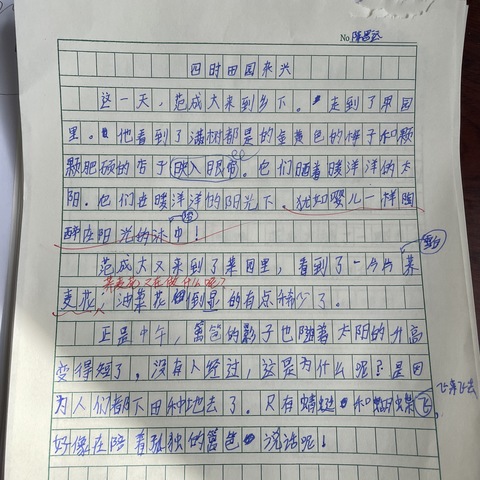 No 陈
四时田园杂兴
这一天，范成大来到乡下。走到了果园
里。他看到了满树都是的金黄色的梅子和颗
颗肥硕的杏子映入眼帘。它们晒着暖洋洋的太
阳。它们在暖洋洋的阳光下，犹如婴儿一样陶
醉在阳光的沐浴中！
范成大又来到了菜园里，看到了一片片荞
麦花，油菜花倒显的有点稀少了。
正是中午，篱笆的影子也随着太阳的升高
变得短了，没有人经过，这是为什么呢？是因
为人们都下田种地去了。只有蜻蜓和蝴蝶飞
飞来飞去，
好像在陪着孤独的篱笆说话呢！